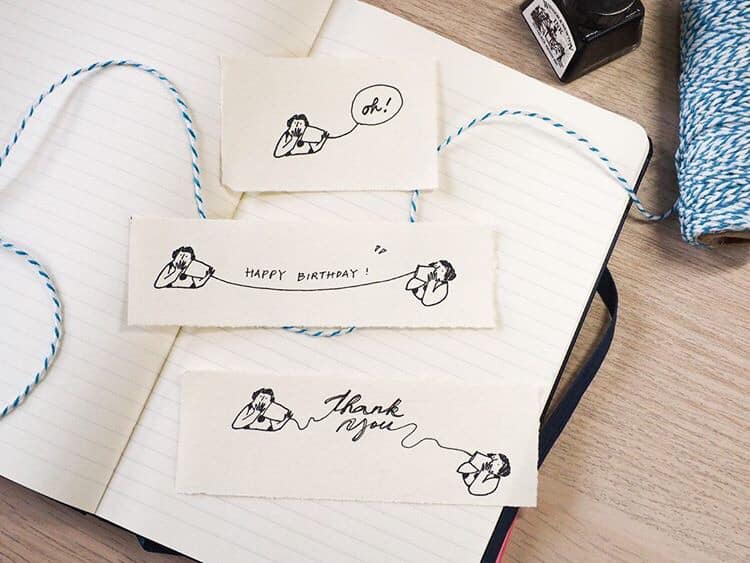 oh!
HAPPY BIRTHDAY !
Thank
You